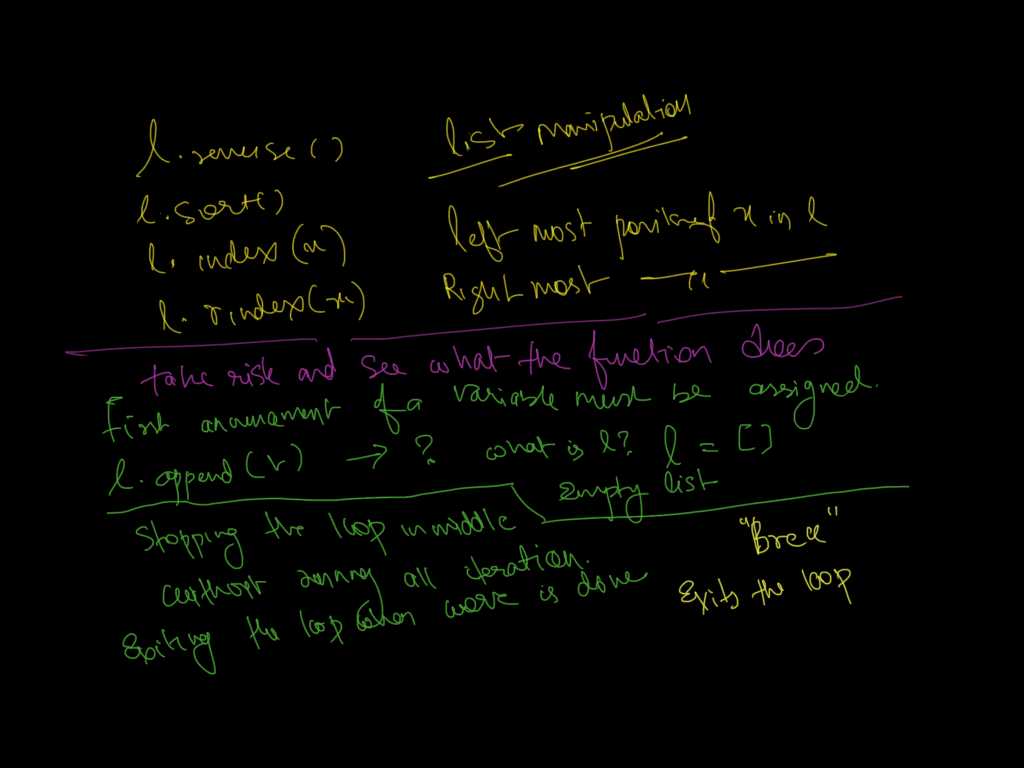 l.reverse()
list manipulation
l.sort()
l.index(x)
left most position of x in l
l.rindex(x)
Right most — " —
take risk and see what the function does
First of a variable must be assigned.
l.append(v) → ? what is l? l = []
Empty list
Stopping the loop in middle
without running all iteration.
Exiting the loop when work is done
"Break"
Exits the loop